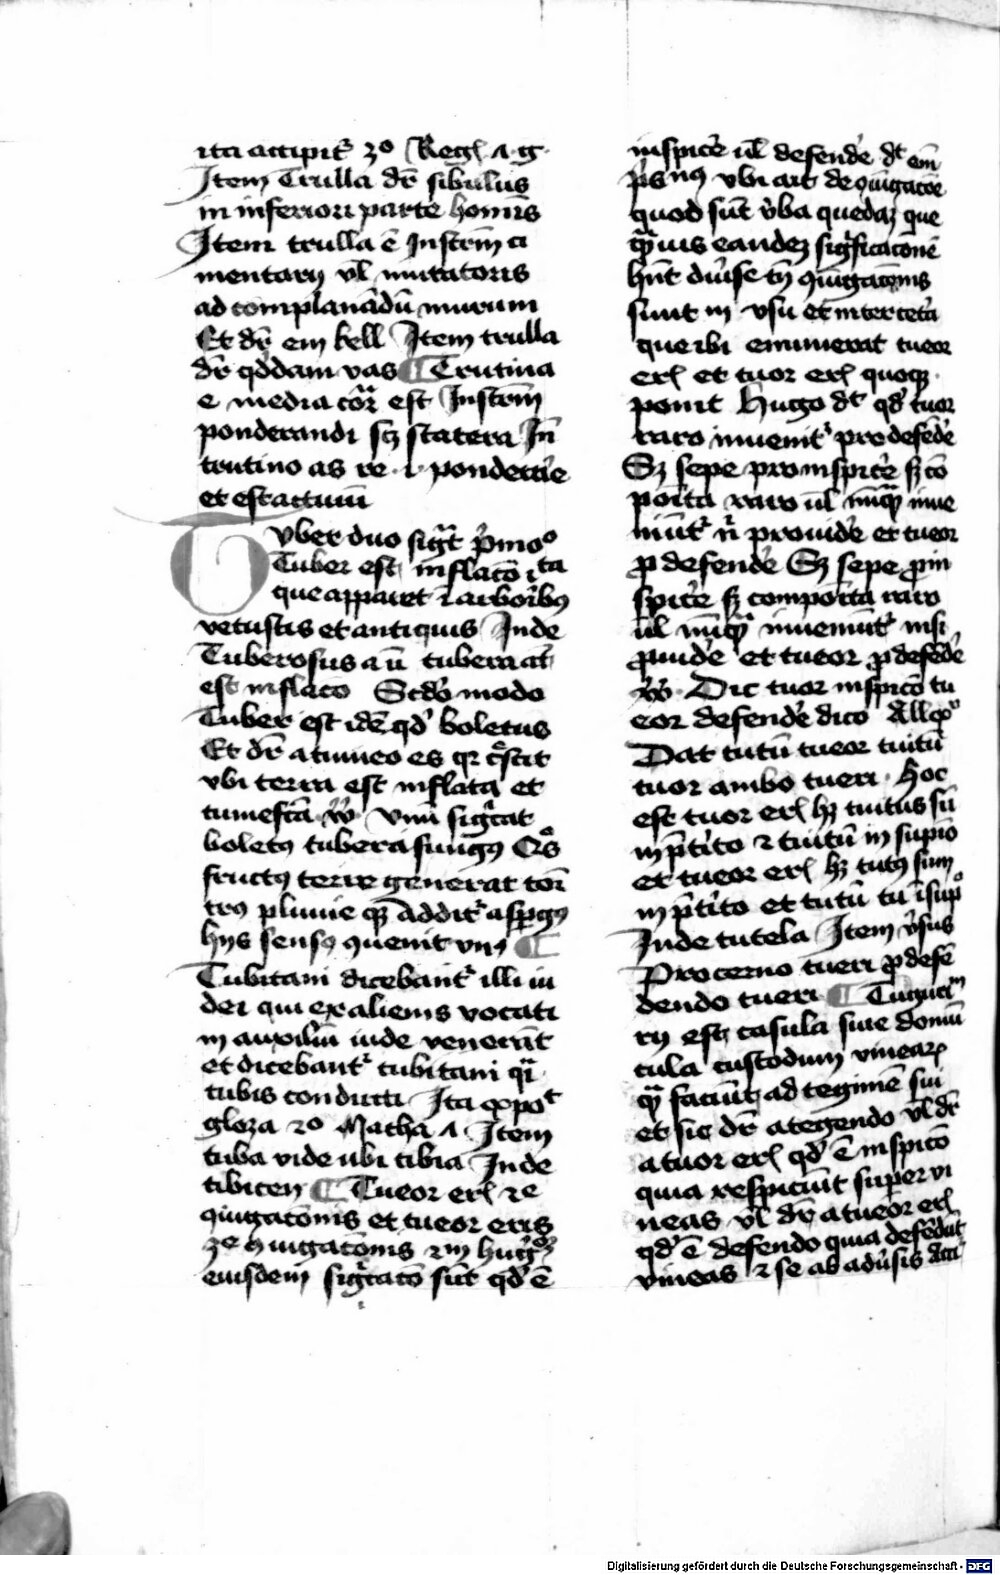 ita accipit᷑ 3º Reg᷑ 1 g
Item Trulla dr̄ sibulus
in inferiori parte homīs
Item trulla ē Instrm̄ ci
mentarij vl̄ muratoris
ad complanādū murum
Et dr̄ em kell Item trulla
dr̄ qd̄dam vas ¶ Trutina
e media cor̄ est Instrm̄
ponderandi sꝫ statera In̄
trutino as re .i. ponderare
et est actiuū
Tvber duo sigt̄ p̄moº
Tuber est inflacō
que apparet ī arboribꝰ
vetustis et antiquis Inde
Tuberosus a ū tubera at̄
est inflaco Scdo modo
Tuber est idē qd̄ boletus
Et dr̄ a tumeo es qr c̄scit
vbi terra est inflata et
tumefc̄a vnū sigcat
boletꝰ tubera fungꝰ
fructꝰ terre generat
pluuie Addit᷑
hijs sensꝰ ꝯuenit vnꝰ ¶
Tubitani dicebant᷑ illi iu
dei qui ex alienis vocati
in auxiliū iude venerāt
et dicebant᷑ tubitani
tubis conducti Ita expot̄
glo2a 2º Macha 1 Item
tuba vide ubi tibia Inde
tibicen ¶ Tueor eri᷑ 2e
ꝯiugacōnis et tueor eris
3e ꝯiugacōnis
eiusdem sigcatō sūt qd̄ ē
inspicē ul̄ defendē dt em̄
vbi ait de ꝯiugacōe
quod sūt v̄ba quedaꝫ que
q̄uis eandeꝫ sigficaconē
hn̄t diūse tn̄ ꝯiugacōnis
sunt in vsu et inter cetā
que ibi enumerat tueor
eri᷑ et tuor eri᷑ quoqꝫ
ponit Hugo dt qd̄ tuor
raro inuenit᷑ pro defēdē
Sꝫ sepe pro inspicē sꝫ cō
poīta raro ul̄ nūq̄ inue
niūt᷑ n̄ prouidē et tueor
ꝓ defendē Sꝫ sepe ꝓ in
spicē sꝫ compoīta raro
ul̄ nūq̄ inueniūt᷑ nisi
ꝓuidē et tueor ꝓ defēdē
Dic tuor inspico tu
eor defendē dico
Dat tutū tueor tuitū
tuor ambo tueri Hoc
est tuor eri᷑ hꝫ tuitus sū
in p̄tito 2 tuitū in supīo
et tueor eri᷑ hꝫ tutꝰ sum
in p̄tito et tutū tu ī supº
Inde tutela Item v̄sus
Pro cerno tueri ꝓ defē
dendo tueri ¶ Tugurī
rij est casula siue domū
cula custodum vineaꝝ
q̄ faciūt ad tegimē sui
et sic dr̄ a tegendo vl̄ dr̄
a tuor eri᷑ qd̄ ē inspico
quia respiciūt super vi
neas vl̄ dr̄ a tueor eri᷑
qd̄ ē defendo quia defēdūt
vineas 2 se ab adūsis
Digitalisierung gefördert durch die Deutsche Forschungsgemeinschaft - DFG